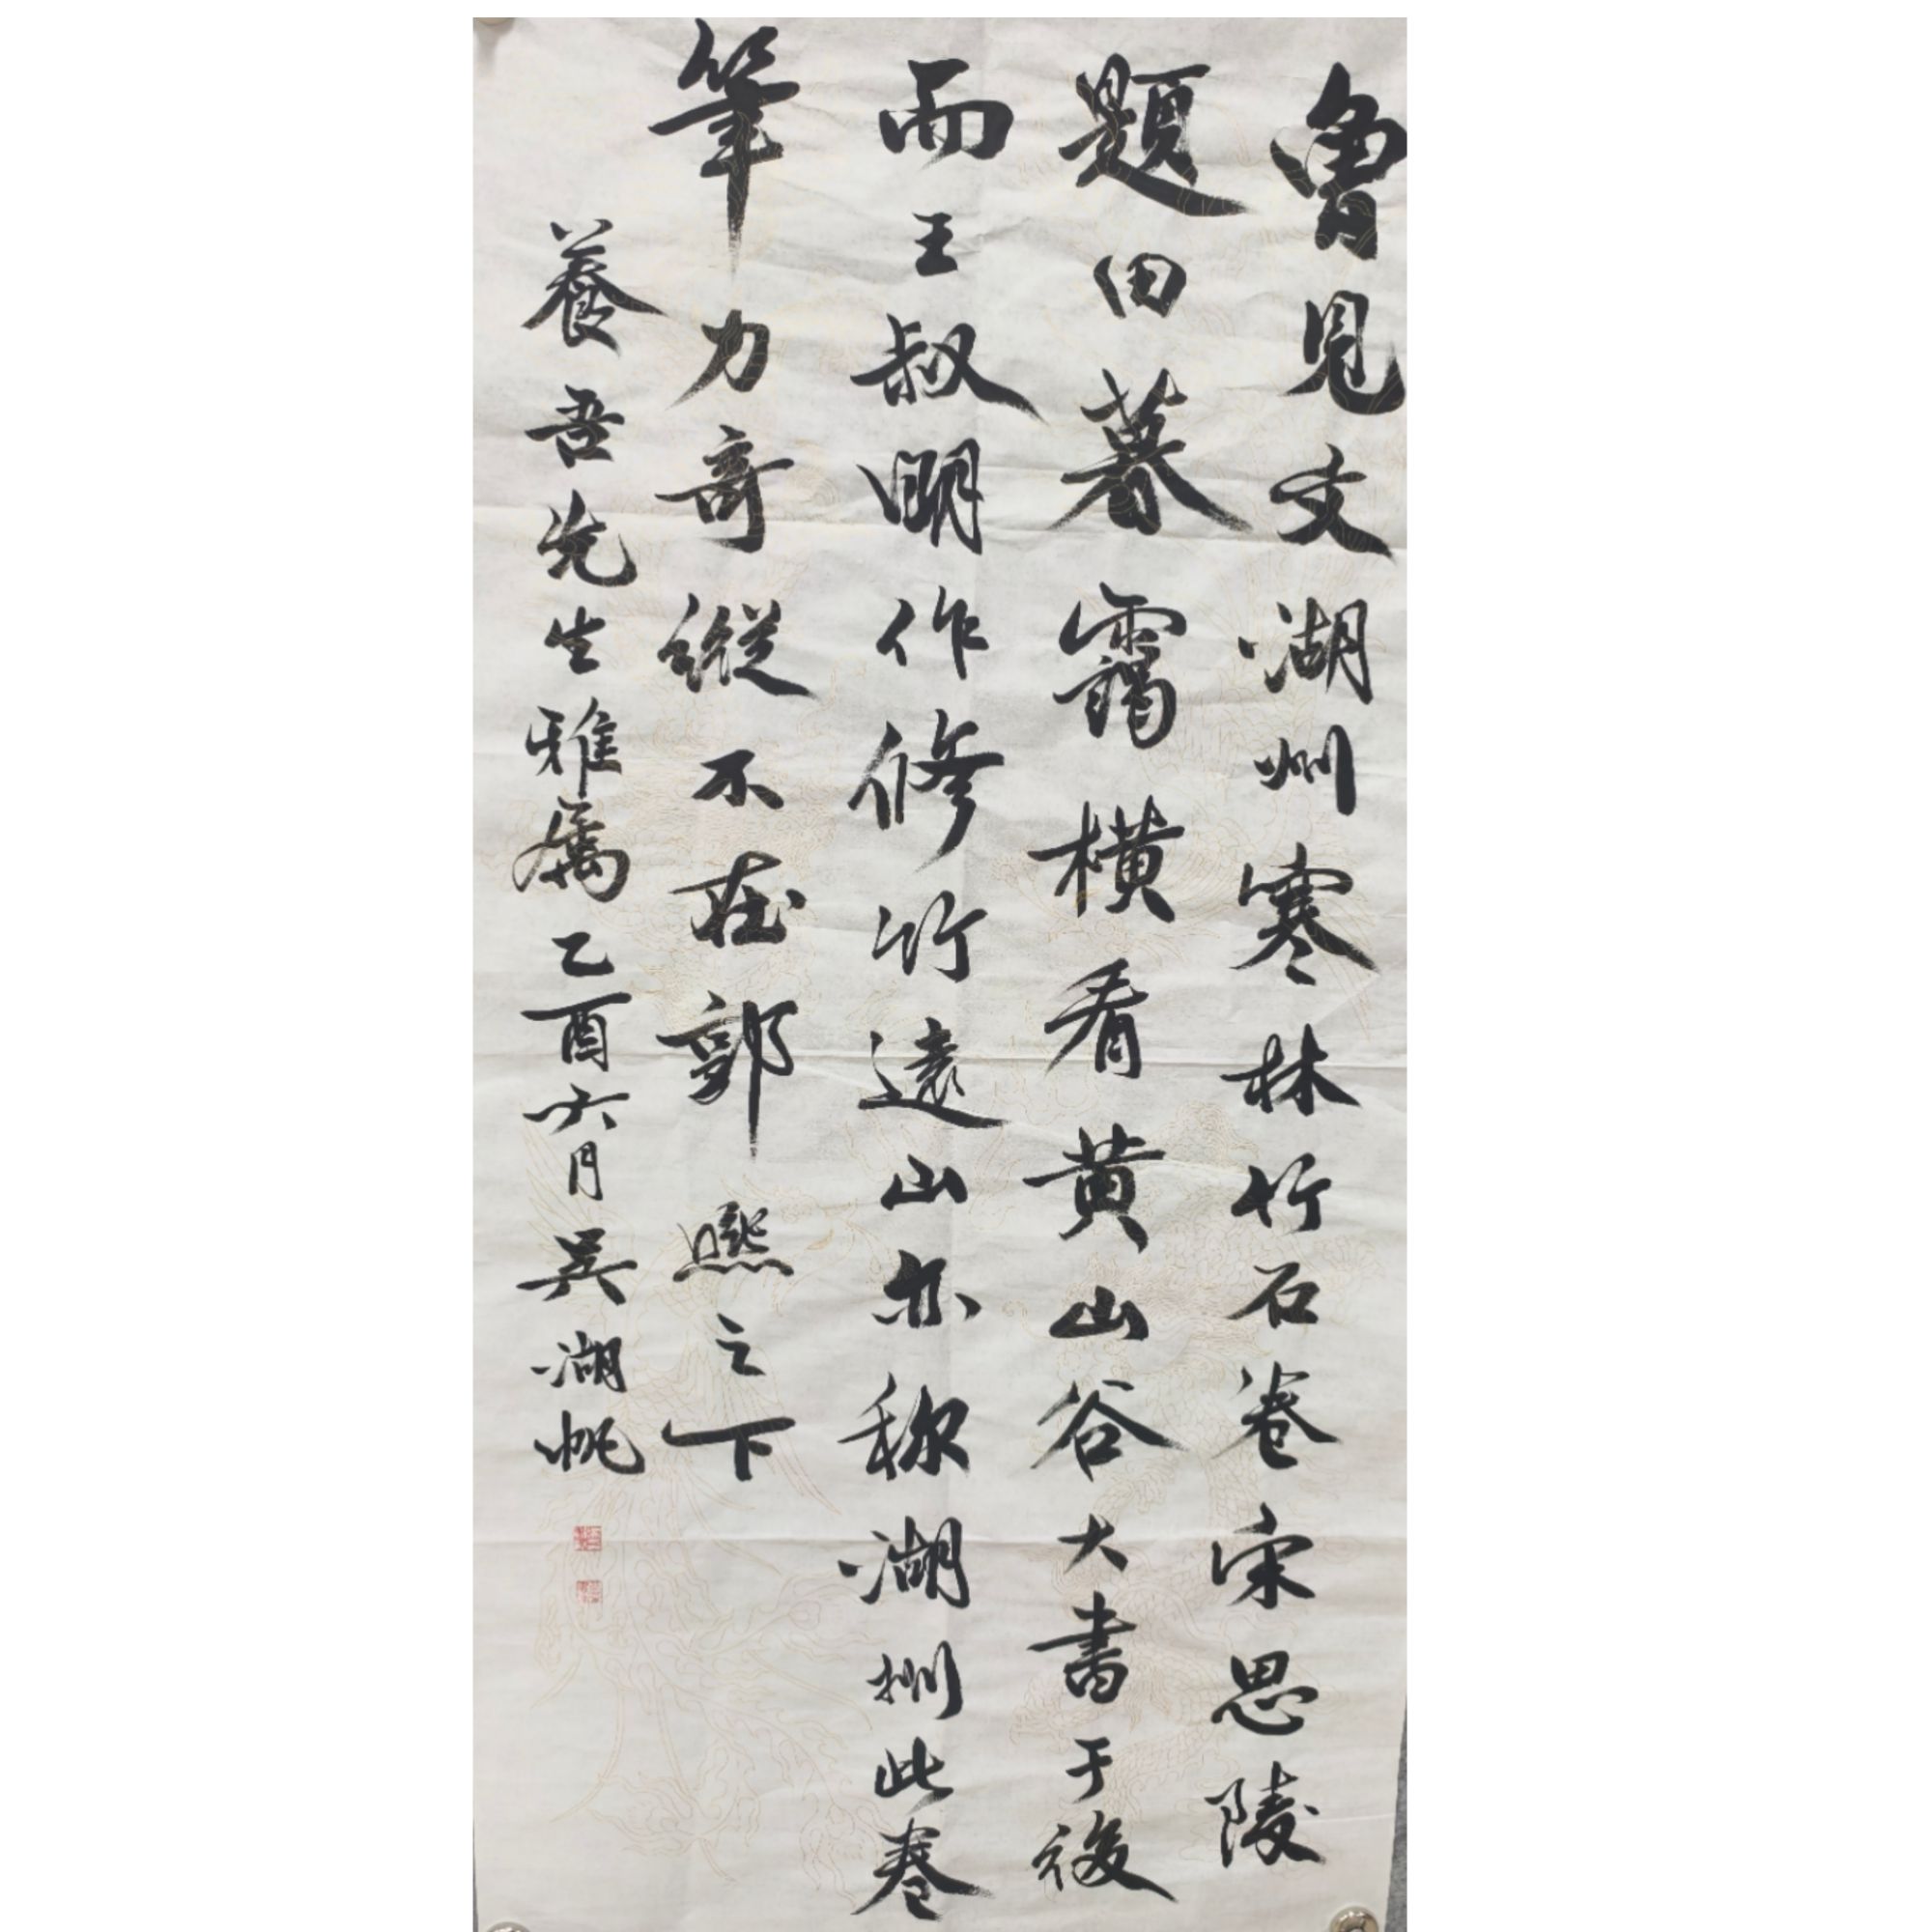 曾見文湖州寒林竹石卷宋思陵
題曰暮靄橫看黄山谷大書于後
而王叔明作修竹遠山亦称湖州此卷
筆力奇縱不在郭熙之下
養吾先生雅屬乙酉六月吳湖帆